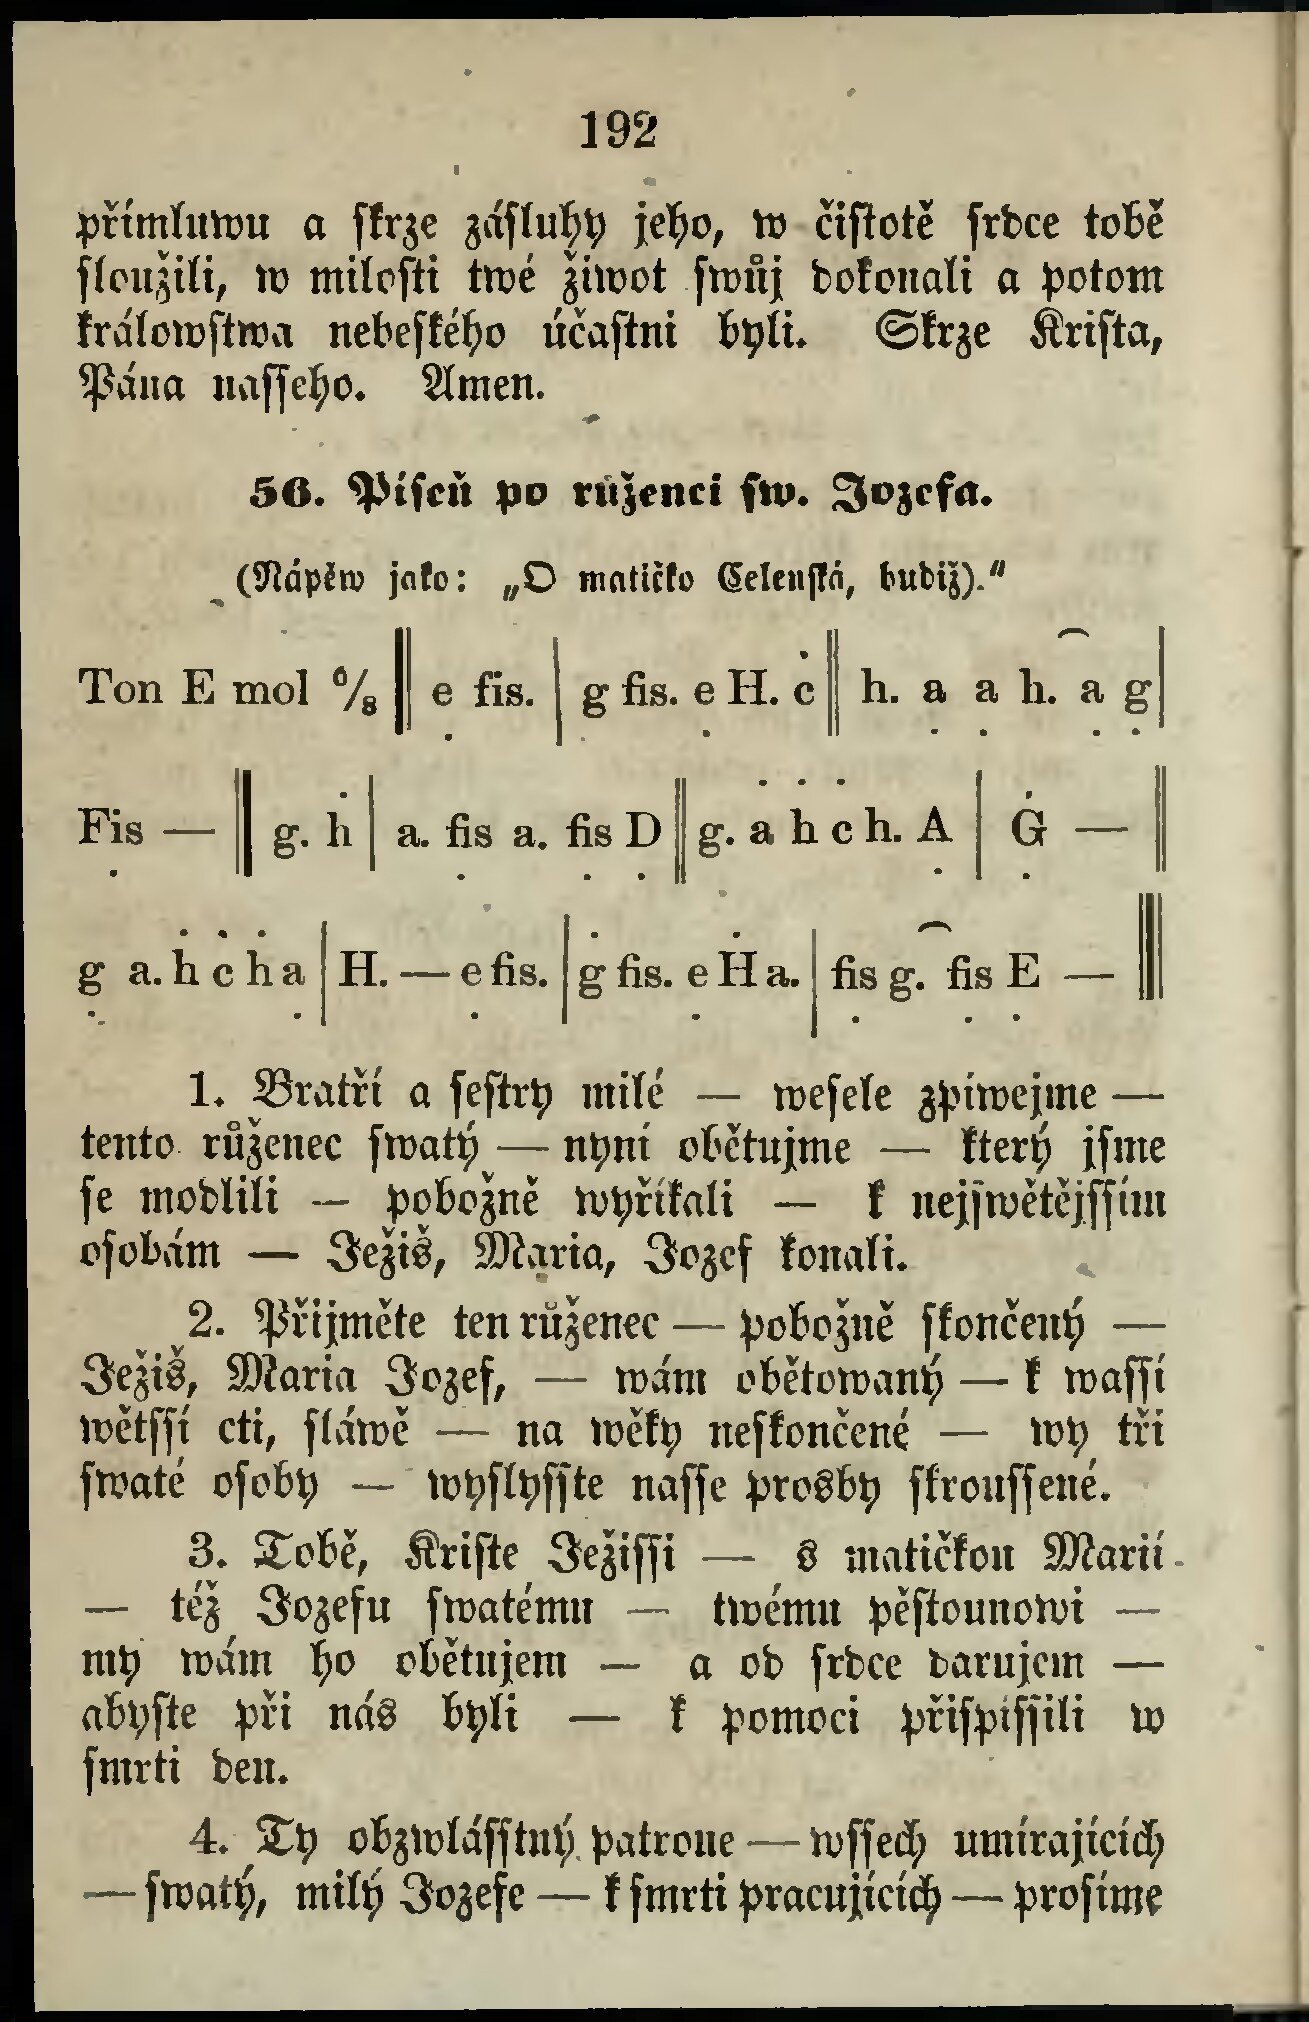 192
přímluwu a skrze zásluhy jeho, w čistotě srdce tobě
sloužili, w milosti twé žiwot swůj dokonali a potom
králowstwa nebeského účastni byli. Skrze Krista,
Pána nasseho. Amen.
56. Píseň po růženci sw. Jozefa.
(Nápěw jako: „O matičko Celenská, budiž)."
Ton E mol 6/8 || e fis. | g fis. e H. ċ || h. a a h. a g |
Fis — || g. ḣ | a. fis a. fis D || g. ȧ ḣ ċ h. A | Ġ — ||
g a. ḣ ċ ḣ a | H. — e fis. | ġ fis. e Ḣ a. | fis g. fis E — |||
1. Bratří a sestry milé — wesele zpíwejme —
tento růženec swatý — nyní obětujme — který jsme
se modlili — pobožně wyříkali — k nejswětějssím
osobám — Ježiš, Maria, Jozef konali.
2. Přijměte ten růženec — pobožně skončený —
Ježiš, Maria Jozef, — wám obětowaný — k wassí
wětssí cti, sláwě — na wěky neskončené — wy tři
swaté osoby — wyslysste nasse prosby skroussené.
3. Tobě, Kriste Ježissi — s matičkou Marií
— též Jozefu swatému — twému pěstounowi —
my wám ho obětujem — a od srdce darujem —
abyste při nás byli — k pomoci přispíssili w
smrti den.
4. Ty obzwlásstný patrone — wssech umírajících
— swatý, milý Jozefe — k smrti pracujících — prosíme